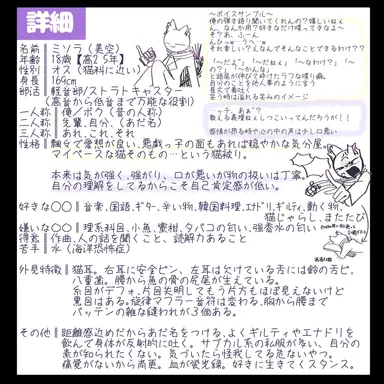 詳細
名前｜ミソラ（美空）
年齢｜18歳【高25年】
性別｜オス（猫科に近い）
身長｜164cm
部活｜軽音部/ストラトキャスター
（高音から低音まで万能な役割）
一人称｜俺/ボク（昔の人称）
二人称｜先輩、自分、（あだ名）
三人称｜あれ、これ、それ
性格｜飄々で愛想が良い、悪戯っ子の面もあれば穏やかな気分屋。
マイペースな猫そのもの…という猫被り。
本来は気が強く、強がり、口が悪いが物の扱いは丁寧。
自分の理解をしてるからこそ自己肯定感が低い。
好きな〇〇｜音楽、国語、ギター、辛い物、韓国料理、エナドリ、ギルティ、動く物、
猫じゃらし、またたび
嫌いな〇〇｜理系科目、小魚、蜜柑、タバコの匂い、強香水の匂い
得意｜作曲、人の話を聞くこと、読解力あること
苦手｜水（海洋恐怖症）
外見特徴｜猫耳。右耳に安全ピン、左耳は欠けている舌には鈴の舌ピ。
八重歯。腰から魚の骨の尻尾が生えている。
糸目がデフォ、片目失明してもう片方もほぼ見えないけど
黒目はある。旋律マフラー音符は変わる、胸から腰まで
バッテンの雑な縫われが3個ある。
その他｜距離感近めだからあだ名をつける、よくギルティやエナドリを
飲んで身体が反射的に吐く。サブカル系の私服が多い、自分の
素が知られたくない。気づいたら怪我してる危ないやつ。
痛覚がないから尚更。血が蛍光緑。好きに生きてくスタンス。
〜ボイスサンプル〜
俺の弾き語り聞いてくれんの？嬉しいねぇ
ん、なんか用？好きなだけ喋ってきなよ〜
そ？あ、ふーん
それ楽しい？えなんでそんなことできるわけ？？
「〜だよ」、「〜だねぇ」、「〜なわけ？」、「〜
の？」、「〜かんな」
自分のことを他人事のように言う
長文で毒吐く
笑う時は溢れる笑みのイメージ
感情が昂る時や心の中の声は少し口悪い